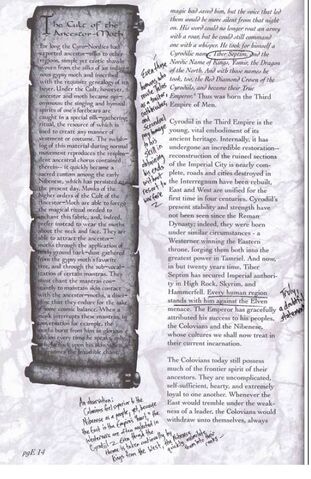 The Cult of the
Ancestor-Moth
For long the Cyro-Nordics had
exported ancestor-silks to other
regions, simple yet exotic shawls
woven from the silks of an indige-
nous gypsy moth and inscribed
with the requisite genealogy of its
buyer. Under the Cult, however,
ancestor and moth became syn-
onymous: the singing and hymnal
spirits of one's forebears are
caught in a special silk-gathering
ritual, the resource of which is
used to create any manner of
vestment or costume. The swish-
ing of this material during normal
movement reproduces the resplen-
dent ancestral chorus contained
therein - it quickly became a
sacred custom among the early
Nibenese, which has persisted to
the present day. Monks of the
higher orders of the Cult of the
Ancestor-Moth are able to forego
the magical ritual needed to
enchant this fabric, and, indeed,
prefer instead to wear the moths
about the neck and face. They are
able to attract the ancestor-
moths through the application of
finely ground bark-dust gathered
from the gypsy moth's favorite
tree, and through the sub-vocal-
ization of certain mantras. They
must chant the mantras con-
stantly to maintain skin contact
with the ancestor-moths, a disci-
pline that they endure for the sake
of some cosmic balance. When a
monk interrupts these mantras, in
conversation for example, the
moths burst from him in glorious
fashion every time he speaks, only
to light back upon his skin when
he resumes the inaudible chant.
magic had saved him, but the voice that led
them would be more silent from that night
on. His word could no longer rout an army
with a roar, but he could still command
one with a whisper. He took for himself a
Cyrodilic name, Tiber Septim, and the
Nordic Name of Kings, Ysmir, the Dragon
of the North. And with those names he
took, too, the Red Diamond Crown of the
Cyrodiils, and became their True
Emperor." Thus was born the Third
Empire of Men.
Cyrodiil in the Third Empire is the
young, vital embodiment of its
ancient heritage. Internally, it has
undergone an incredible restoration -
reconstruction of the ruined sections
of the Imperial City is nearly com-
plete, roads and cities destroyed in
the Interregnum have been rebuilt,
East and West are unified for the
first time in four centuries. Cyrodiil's
present stability and strength have
not been seen since the Reman
Dynasty; indeed, they were born
under similar circumstances - a
Westerner winning the Eastern
throne, forging them both into the
greatest power in Tamriel. And now,
in but twenty years time, Tiber
Septim has secured Imperial author-
ity in High Rock, Skyrim, and
Hammerfell. Every human region
stands with him against the Elven
menace. The Emperor has graciously
attributed his success to his peoples,
the Colovians and the Nibenese,
whose cultures we shall now treat in
their current incarnation.
The Colovians today still possess
much of the frontier spirit of their
ancestors. They are uncomplicated,
self-sufficient, hearty, and extremely
loyal to one another. Whenever the
East would tremble under the weak-
ness of a leader, the Colovians would
withdraw unto themselves, always
Truly,
a doubtful
statement!
An observation:
Colovians feel superior to the
Nibenese as a people, yet because
the East is the Empire's
Westerners are often neglected in
Cyrodiil. Even though the
throne is taken continually by
Kings from the West, the Nibenese
pgE 14